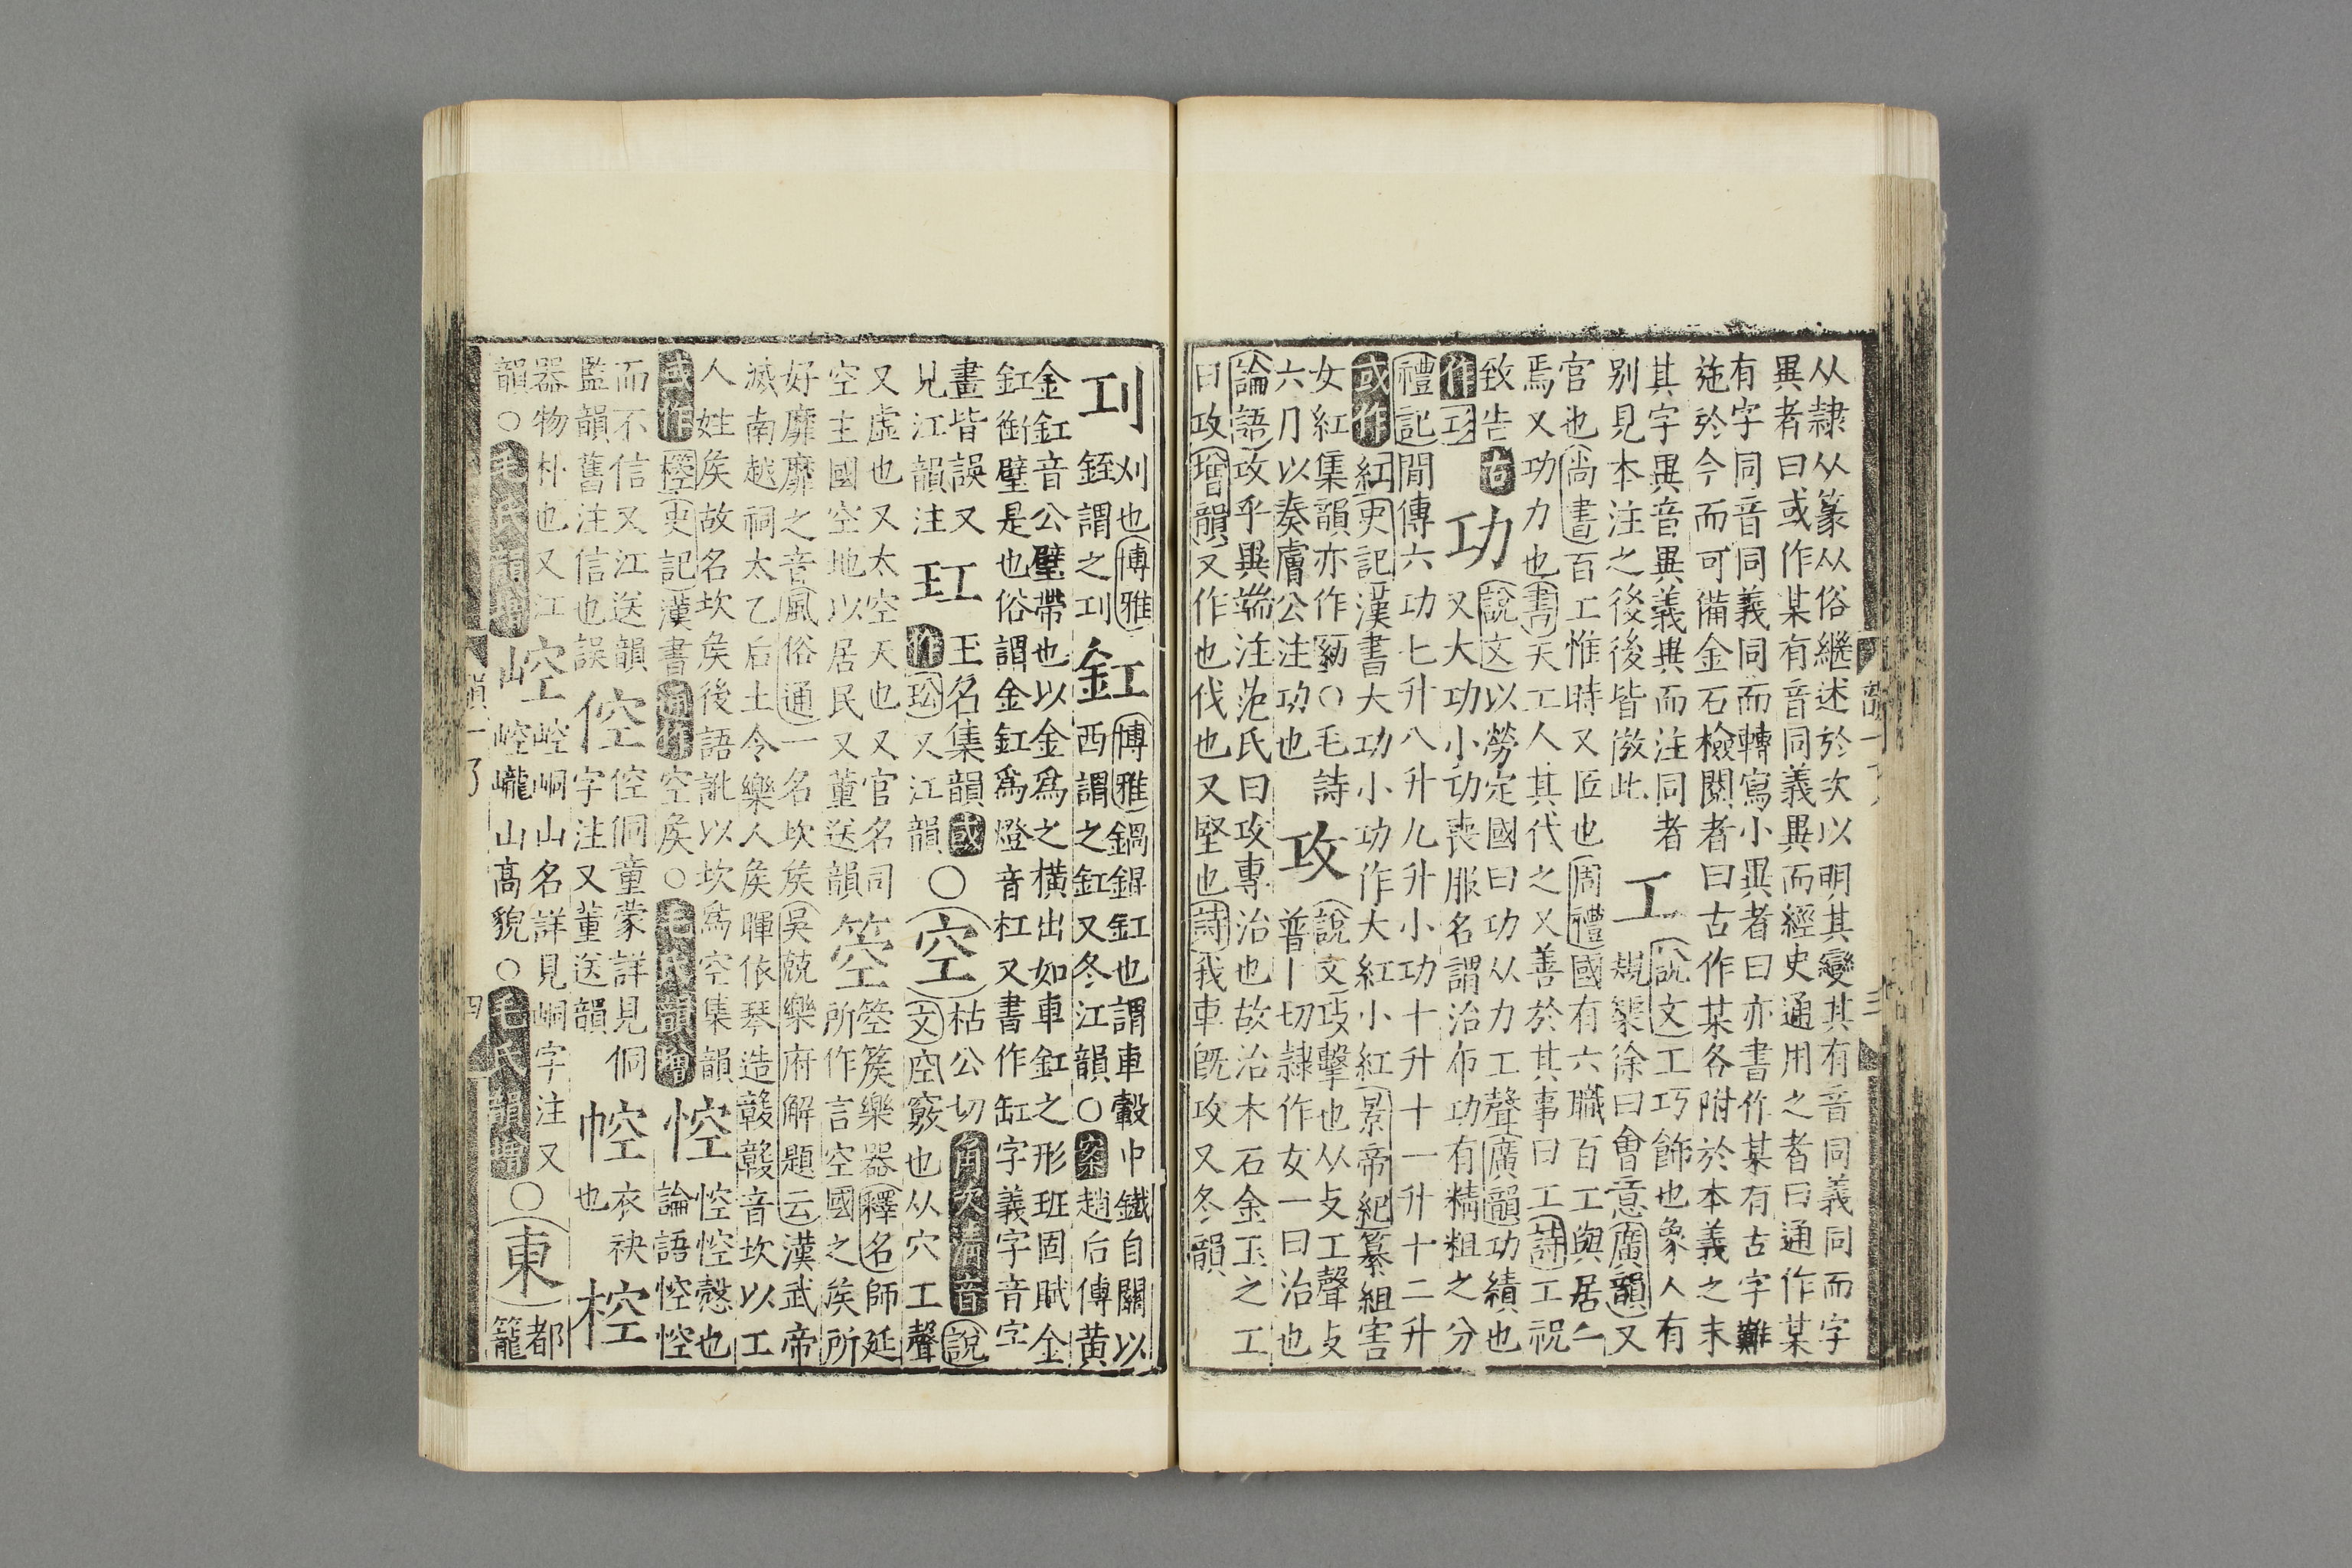 从隷从篆从俗繼述於次以明其變其有音同義同而字
異者曰或作某有音同義異而經史通用之者曰通作某
有字同音同義同而轉寫小異者曰亦書作某有古字難
施於今而可備金石檢閱者曰古作某各附於本義之末
其字異音異義異而注同者
别見本注之後後皆倣此
工
說文工巧飾也象人有
規榘徐曰會意廣韻又
官也尚書百工惟時又匠也周禮國有六職百工與居一
焉又功力也書天工人其代之又善於其事曰工詩工祝
致告古
作
功
說文以勞定國曰功从力工聲廣韻功績也
又大功小功喪服名謂治布功有精粗之分
禮記間傳六功七升八升九升小功十升十一升十二升
或作紅史記漢書大功小功作大紅小紅景帝紀纂組害
女紅集韻亦作○毛詩
六月以奏膚公注功也
攻
說文攷擊也从攴工聲攴
普卜切隷作女一曰治也
論語攻乎異端注范氏曰攻專治也故治木石金玉之工
曰攻增韻又作也伐也又堅也詩我車旣攻又冬韻
㓚
刈也博雅
銍謂之㓚
釭
博雅鍋錕釭也謂車轂中鐵自關以
西謂之釭又冬江韻○案趙后傳黄
金釭音公壁帶也以金爲之橫出如車釭之形班固賦金
釭銜璧是也俗謂金釭爲燈音杠又書作缸字義字音字
畫皆誤又
見江韻注
玒
玉名集韻或
作㺬又江韻
○空
枯公切角次清音說
文空竅也从穴工聲
又虛也又太空天也又官名司
空主國空地以居民又董送韻
箜
箜篌樂器釋名師延
所作言空國之矦所
好靡靡之音風俗通一名坎矦吳兢樂府解題云漢武帝
滅南越祠太乙后土令樂人矦暉依琴造䪫䪫音坎以工
人姓矦故名坎矦後語訛以坎爲空集韻
或作椌史記漢書通作空矦○毛氏韻增
悾
悾悾慤也
論語悾悾
而不信又江送韻
監韻舊注信也誤
倥
倥侗童蒙詳見侗
字注又董送韻
㤟
衣袂
也
椌
器物朴也又江
韻○毛氏韻增
崆
崆峒山名詳見峒字注又
崆巄山高貌○毛氏韻增
○東
都
籠